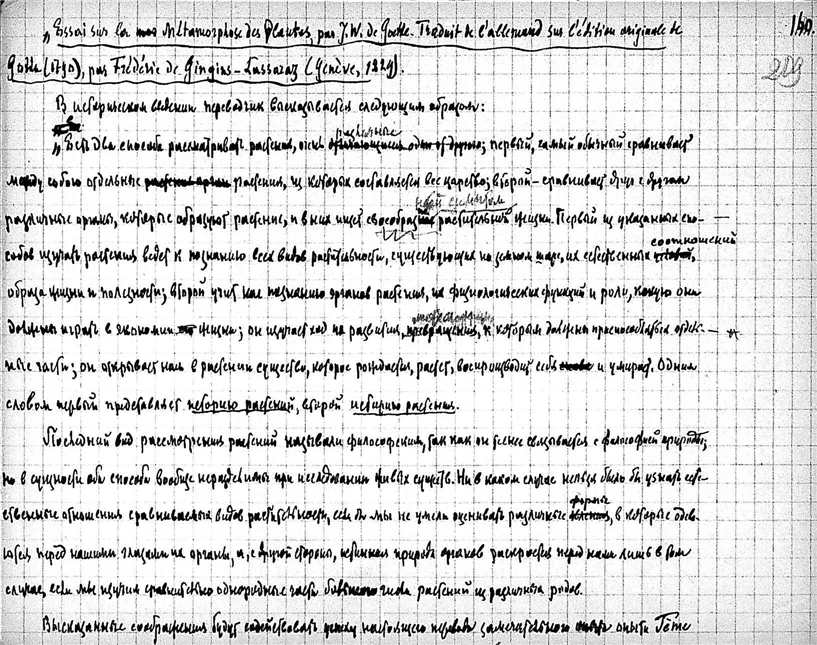 140.
219
„Essai sur la Métamorphose des Plantes, par J. W. de Goethe. Traduit de l'allemand sur l'édition originale de
Gotha (1790), par Frédéric de Gingins-Lassaraz (Genève, 1829).
В историческом введении переводчик высказывается следующим образом:
„Есть два способа рассматривать растения, очень различные; первый, самый обычный сравнивает
между собою отдельные растения, из которых составляется все царство; второй – сравнивает друг с другом
различные органы, которые образуют растение, и в них ищет растительной жизни. Первый из указанных спо-
собов изучать растения ведет к познанию всех видов растительности, существующих на земном шаре, их естественных соотношений,
образа жизни и полезности; второй учит нас познанию органов растения, их физиологических функций и роли, какую они
должны играть в экономии жизни; он изучает ход их развития, к которым должны приспособляться отдель-
ные части; он открывает нам в растении существо, которое рождается, растет, воспроизводит себя и умирает. Одним
словом первый представляет историю растений, второй историю растения.
Последний вид рассмотрения растений называли философским, так как он более связывается с философией природы;
но в сущности оба способа вообще нераздельны при исследовании живых существ. Ни в каком случае нельзя было бы узнать есте-
ственные отношения сравниваемых видов растительности, если бы мы не умели оценивать различные формы, в которые обле-
каются перед нашими глазами их органы, и, с другой стороны, истинная природа органов раскроется перед нами лишь в том
случае, если мы изучим сравнительно однородные части числа растений из различных родов.
Высказанные соображения будут содействовать успеху настоящего перевода замечательного опыта Гёте